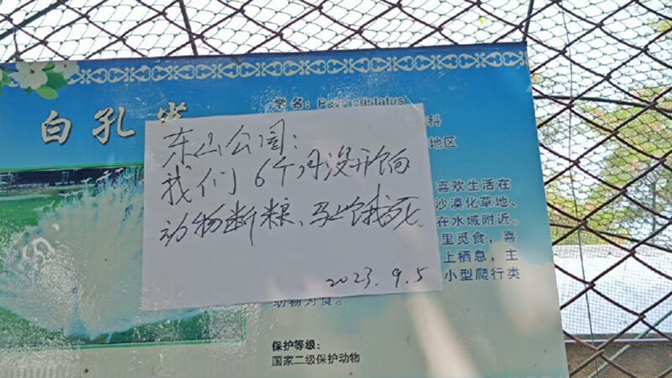 白孔雀
学名：Pavo cristatus
科
地区
东山公园：
我们6个月没开饷
动物断粮、马上饿死
2023.9.5
喜欢生活在
沙漠化草地、
在水域附近。
里觅食，喜
上栖息，主
小型爬行类
动物为食。
保护等级：
国家二级保护动物